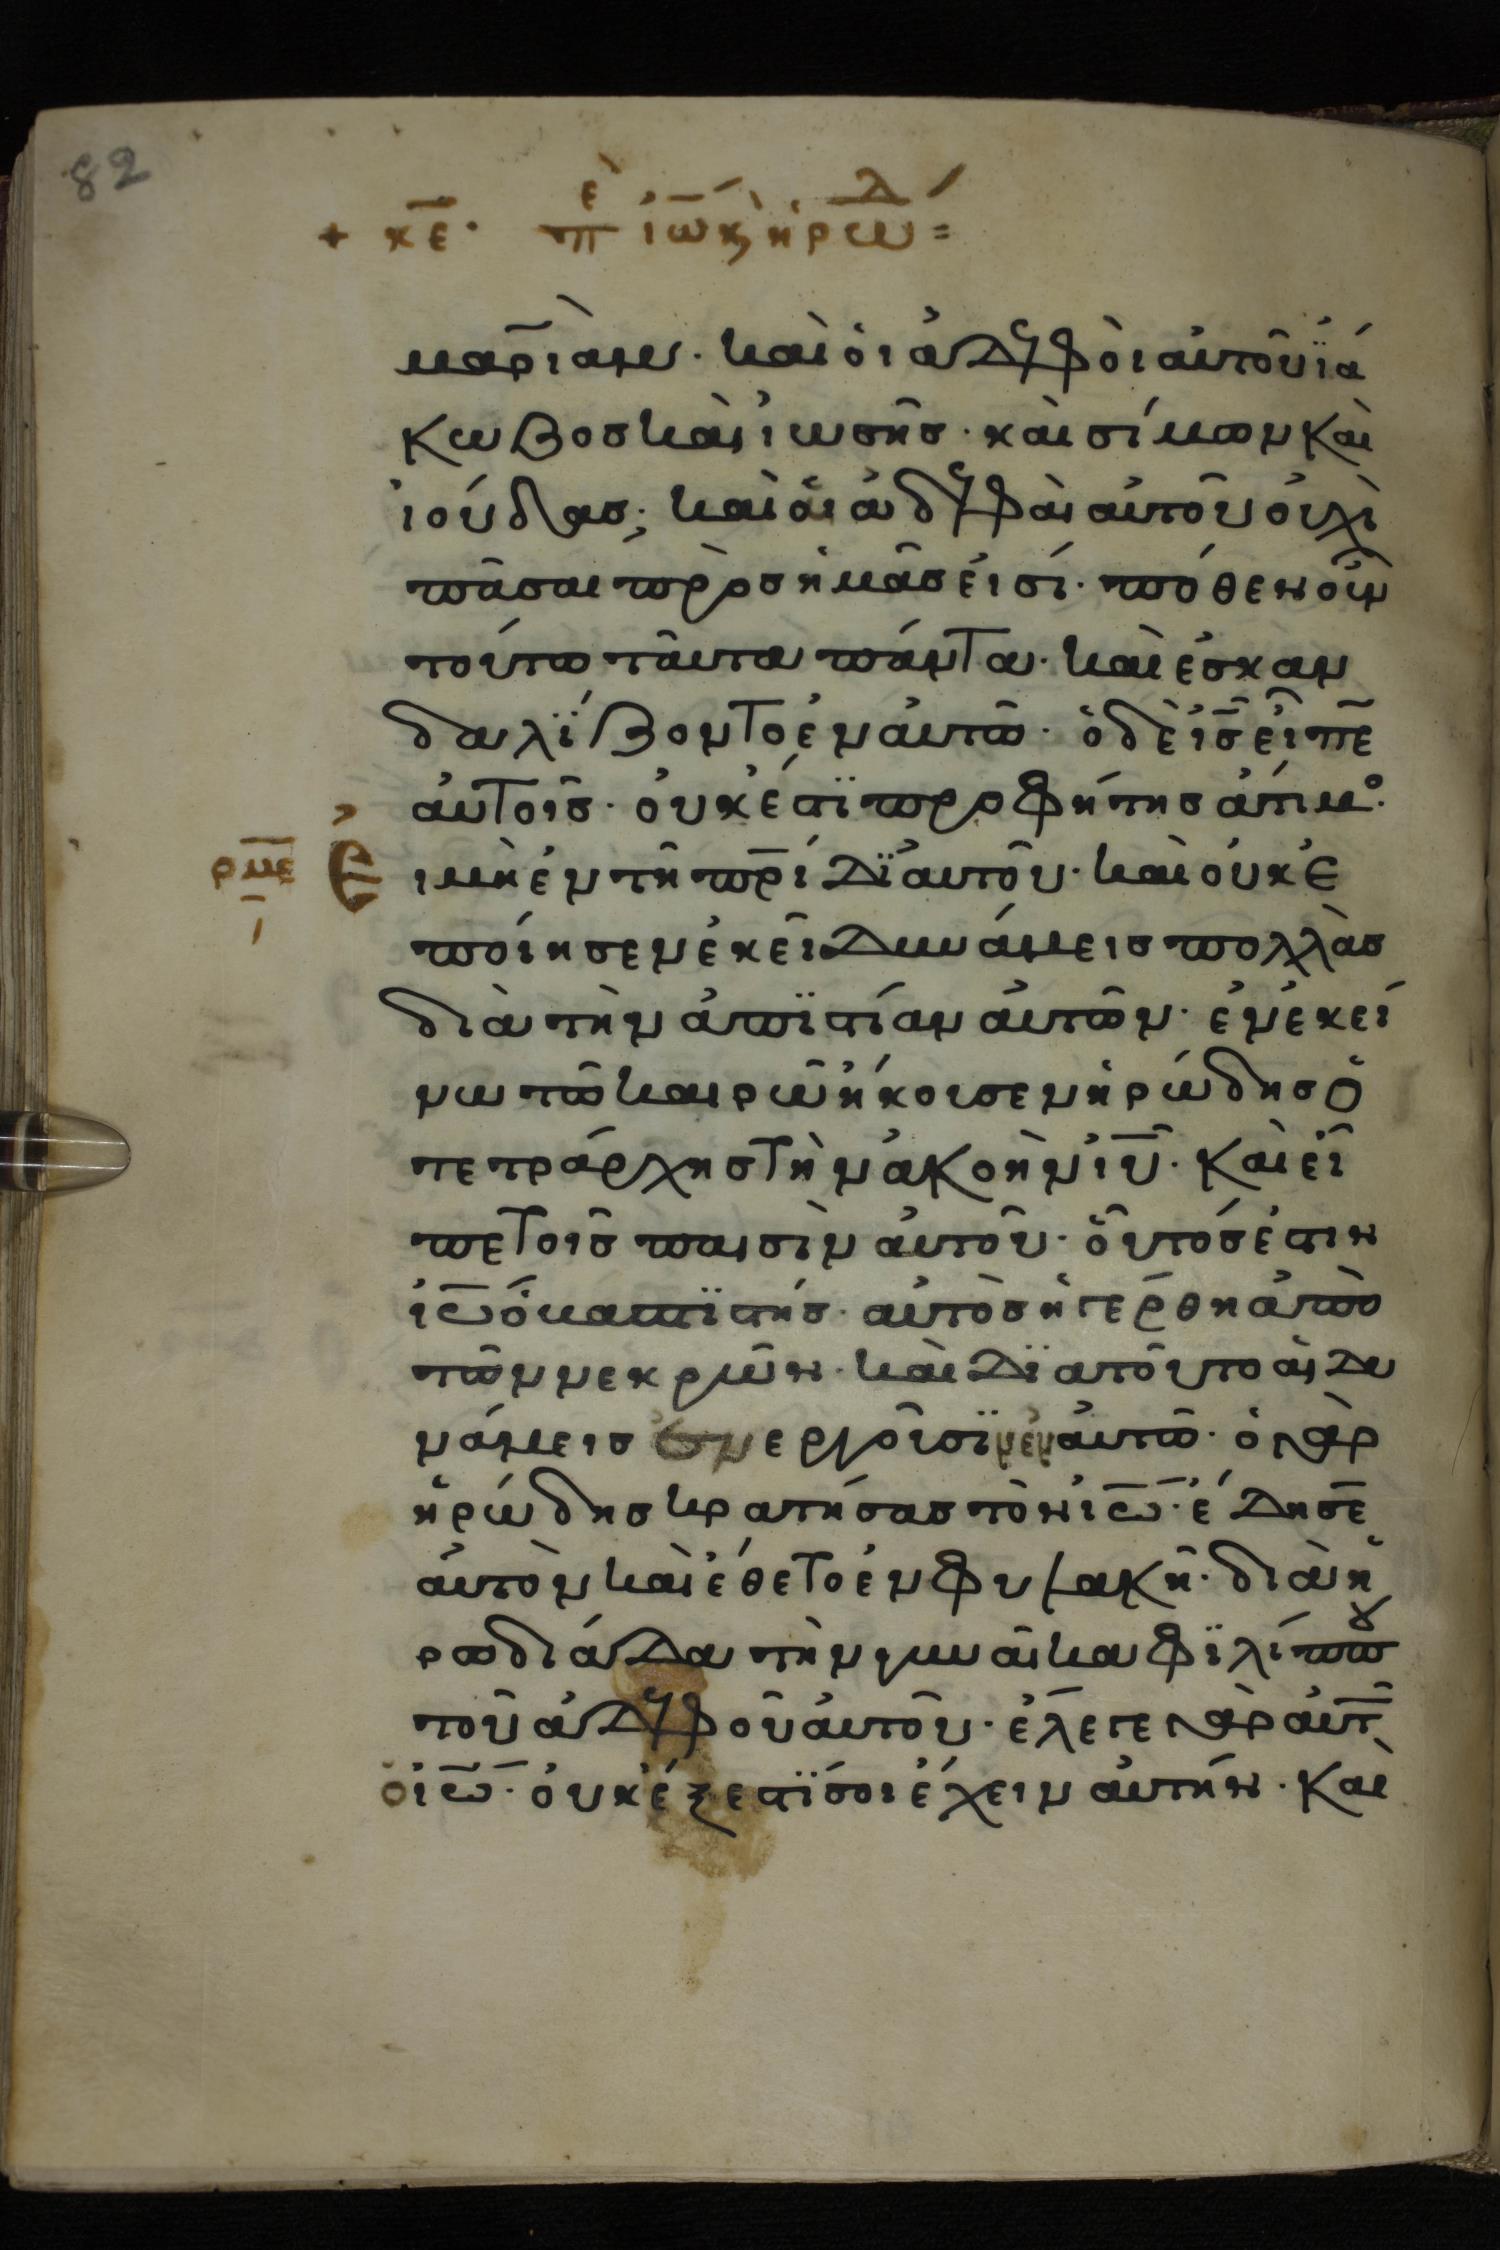 82
+ κε̅· πὲ ἰω̅ κ̀ ἡρωδ =
μαριὰμ· καὶ ὁι ἀδελφὸι αυτοῦ ϊά
κωβοσ καὶ ἰωσῆσ· κὰι σίμων κὰι
ἰούδασ; καὶ ἁι ἀδελφὰι αυτοῦ ὀυχὶ
πᾶσαι πρὸσ ἡμᾶσ ἐισί· πόθεν οὖν
τούτω ταῦτα πάντα· καὶ ἐσκαν
δαλΐζοντο ἐν ἀυτῶ· ὁ δὲ ι̅σ̅ εἶπε
ἀυτοῖσ· οὐκ ἔστϊ προφήτησ ἄτιμο·
ρμε̅
ι
Ἐ
ι μὴ ἐν τῆ πρ̅ίδϊ ἀυτοῦ· καὶ οὐκ ἐ
ποίησεν ἐκεῖ δυνάμεισ πολλὰσ
διὰ τὴν ἀπϊστίαν ἀυτῶν· ἐν ἐκεί
νω τῶ καιρῶ ἤκουσεν ἡρώδησ ὁ
τετράρχησ τὴν ἀκοὴν ι̅υ̅· κὰι εἶ
πε τοῖσ παισὶν ἀυτοῦ· οὗτόσ ἐστιν
ἰω̅ ὁ βαπτϊστήσ· αὐτὸσ ἠγέρθη ἀπὸ
τῶν νεκρῶν· κὰι δϊατοῦτο ἁι δυ
νάμεισ ἐνεργοῦσϊν ἐν ἀυτῶ· ὁ γὰρ
ἡρώδησ κρατήσασ τὸν ἰω̅· ἔδησε̅
ἀυτὸν καὶ ἔθετο ἐν φυλακῆ· διὰ ἡ
ρωδιάδα τὴν γυναῖκα φϊλίππου
τοῦ ἀδελφοῦ ἀυτοῦ· ἔλεγε γὰρ ἀυτ
ὁ ἰω̅· ὀυκ ἔξεστΐ σοι ἔχειν ἀυτήν· κὰι